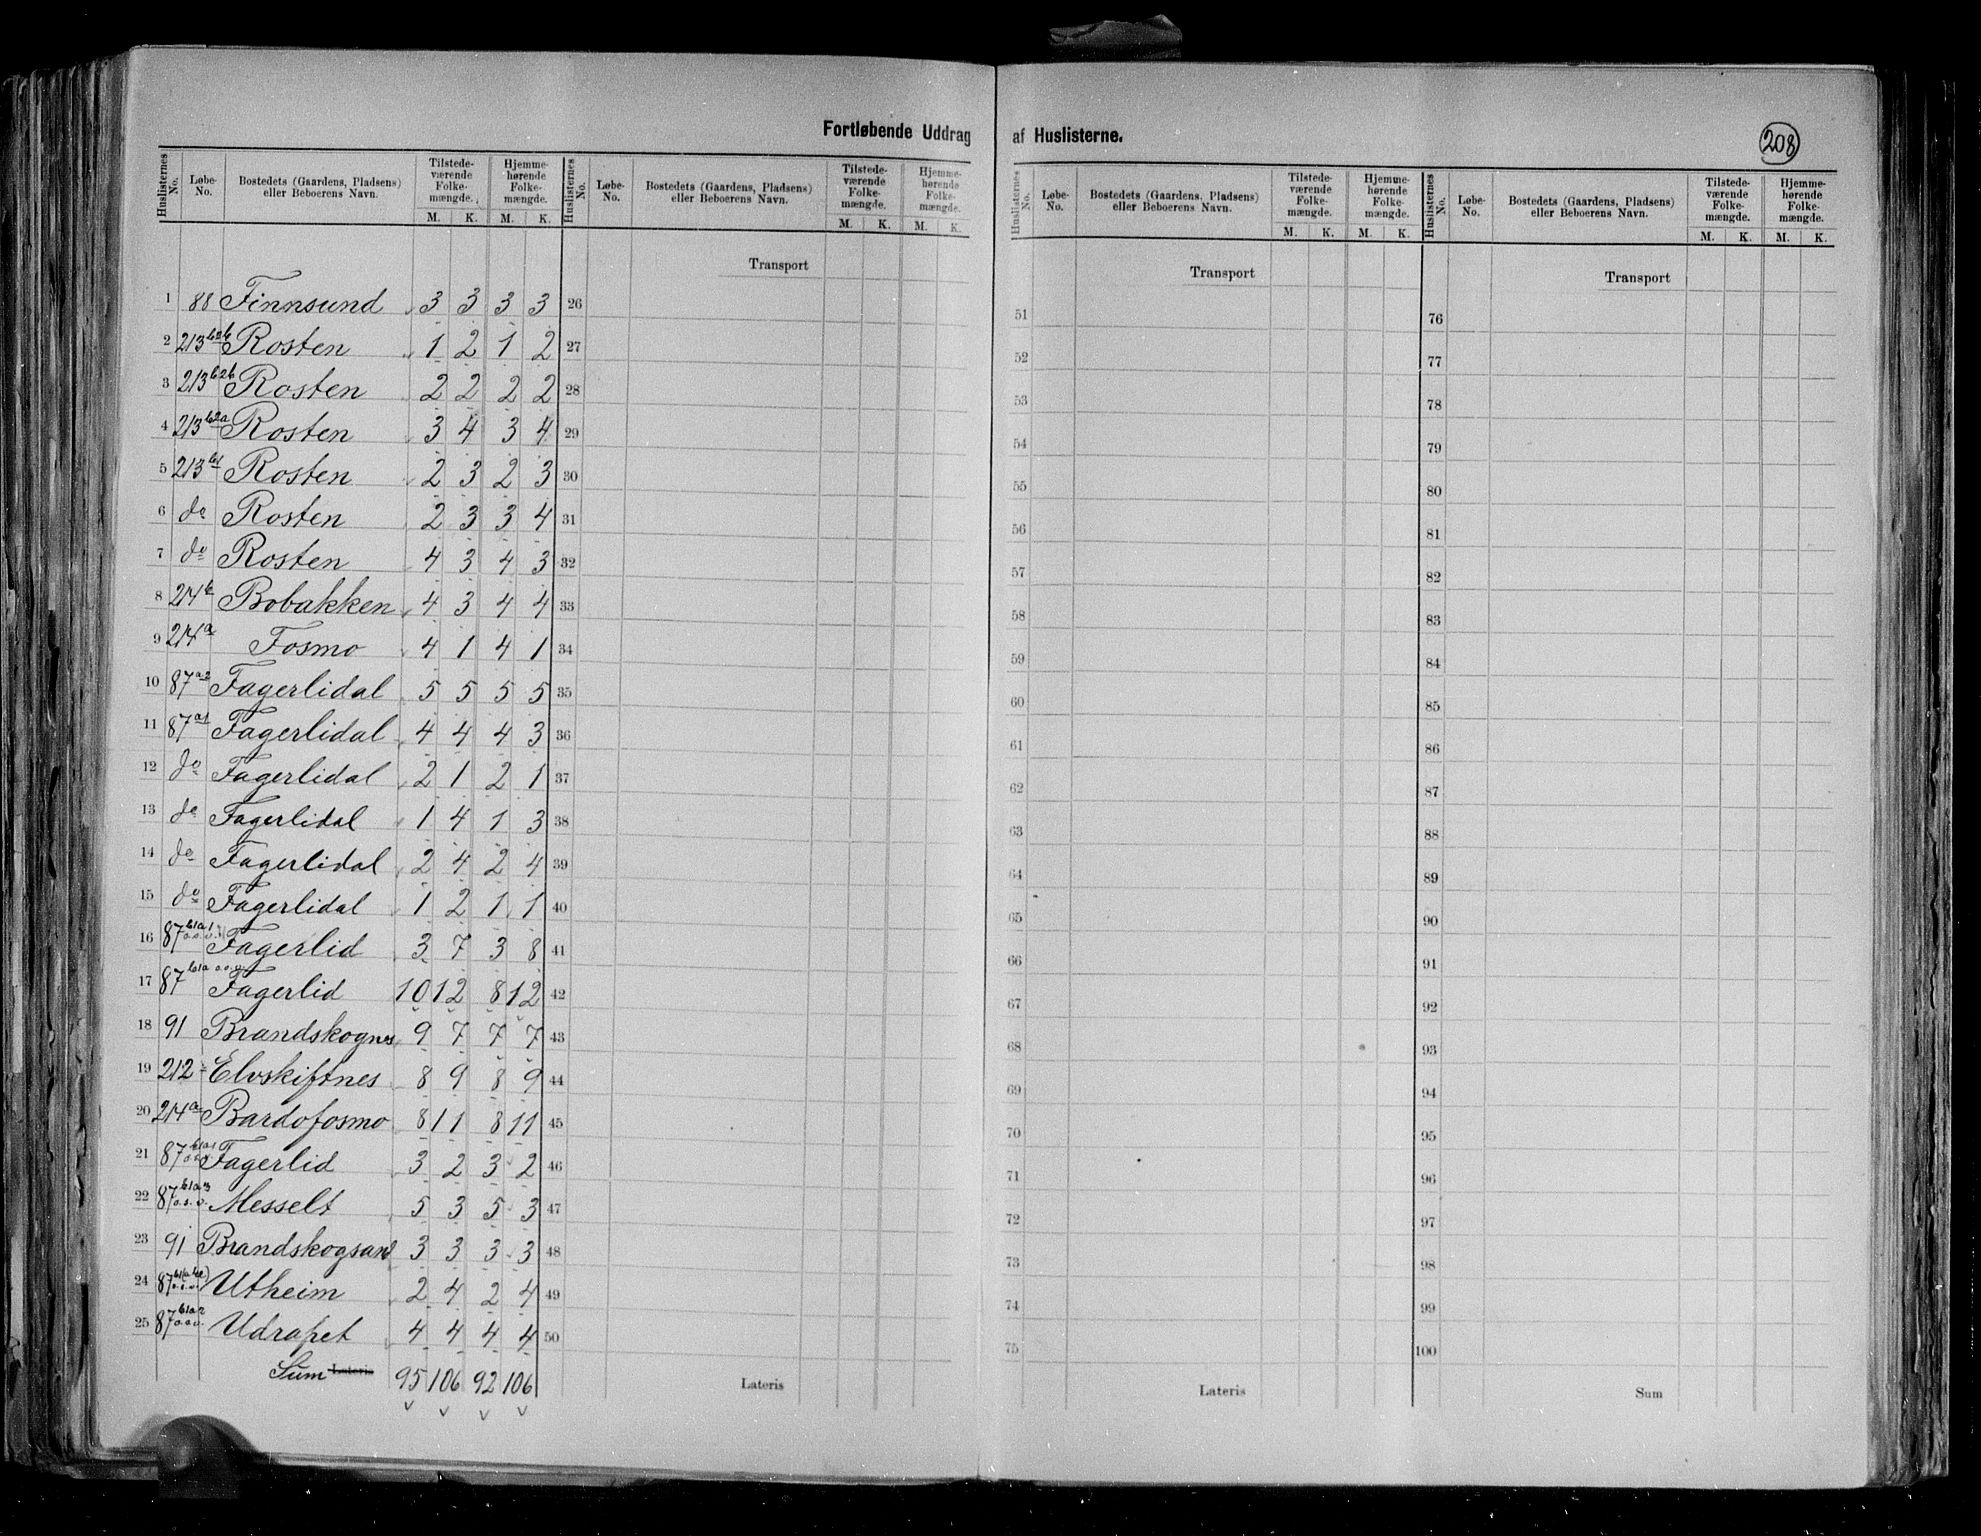 Fortløbende Uddrag af Huslisterne.
208
Huslisternes No. Løbe-No. Bostedets (Gaardens, Pladsens) eller Beboerens Navn. Tilstedeværende Folkemængde. M. K. Hjemmehørende Folkemængde. M. K.
Huslisternes No. Løbe-No. Bostedets (Gaardens, Pladsens) eller Beboerens Navn. Tilstedeværende Folkemængde. M. K. Hjemmehørende Folkemængde. M. K.
Huslisternes No. Løbe-No. Bostedets (Gaardens, Pladsens) eller Beboerens Navn. Tilstedeværende Folkemængde. M. K. Hjemmehørende Folkemængde. M. K.
Huslisternes No. Løbe-No. Bostedets (Gaardens, Pladsens) eller Beboerens Navn. Tilstedeværende Folkemængde. M. K. Hjemmehørende Folkemængde. M. K.
1 88 Finnsund 3 3 3 3
2 213 b2b Rosten 1 2 1 2
3 213 b2b Rosten 2 2 2 2
4 213 b2a Rosten 3 4 3 4
5 213 b1 Rosten 2 3 2 3
6 do Rosten 2 3 3 4
7 do Rosten 4 3 4 3
8 214 b Bobakken 4 3 4 4
9 214 a Fosmo 4 1 4 1
10 87 a2 Fagerlidal 5 5 5 5
11 87 a1 Fagerlidal 4 4 4 3
12 do Fagerlidal 2 1 2 1
13 do Fagerlidal 1 4 1 3
14 do Fagerlidal 2 4 2 4
15 do Fagerlidal 1 2 1 1
16 87 b1a1 o.s.v. Fagerlid 3 7 3 8
17 87 b1a o.s.v. Fagerlid 10 12 8 12
18 91 Brandskognes 9 7 7 7
19 212 Elvskiftnes 8 9 8 9
20 214 a Bardofosmo 8 11 8 11
21 87 b1a1 o.s.v. Fagerlid 3 2 3 2
22 87 b1a3 o.s.v. Messelt 5 3 5 3
23 91 Brandskogsand 3 3 3 3
24 87 o.s.v. Utheim 2 4 2 4
25 87 b1a2 o.s.v. Udrapet 4 4 4 4
Sum Lateris 95 106 92 106
Transport
26
27
28
29
30
31
32
33
34
35
36
37
38
39
40
41
42
43
44
45
46
47
48
49
50
Lateris
Transport
51
52
53
54
55
56
57
58
59
60
61
62
63
64
65
66
67
68
69
70
71
72
73
74
75
Lateris
Transport
76
77
78
79
80
81
82
83
84
85
86
87
88
89
90
91
92
93
94
95
96
97
98
99
100
Sum